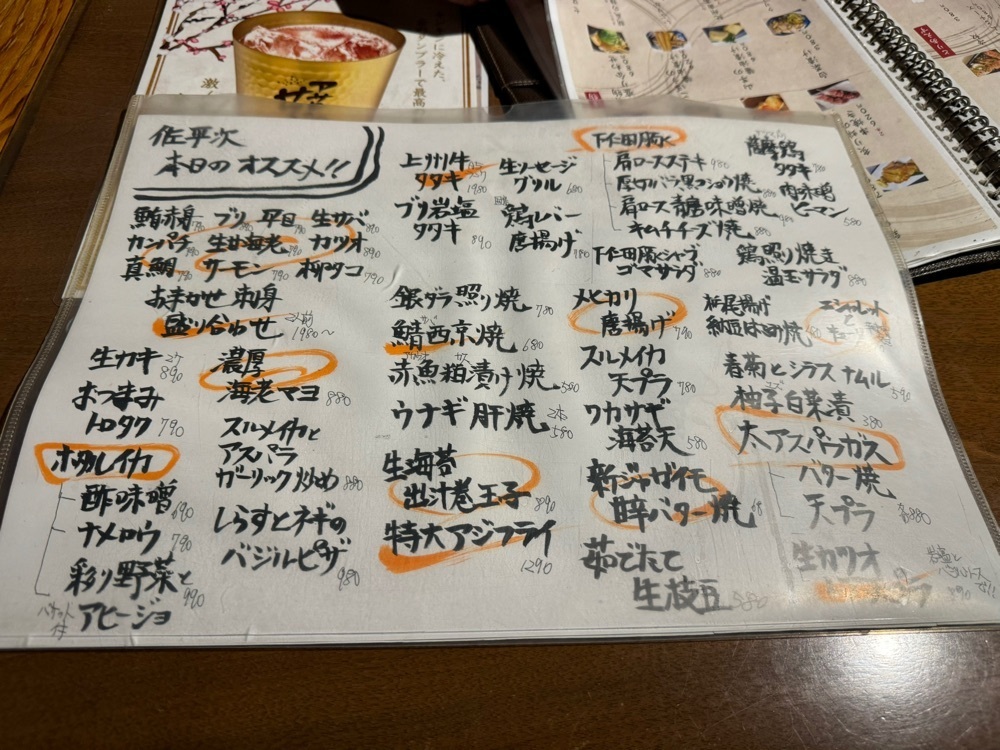 佐平次
本日のオススメ!!
鮪赤身 ブリ 平目 生サバ
カンパチ 生甘海老 カツオ
真鯛 サーモン 柳ダコ
おまかせ 刺身
盛り合わせ 1980~
生カキ 890
おつまみ
トロタク 790
ホタルイカ
酢味噌 690
ナメロウ 790
彩り野菜と 990
アヒージョ
バケット付
濃厚
海老マヨ 880
スルメイカと
アスパラ
ガーリック炒め 880
しらすとネギの
バジルピザ 980
上州牛
タタキ 1980
ブリ岩塩
タタキ 890
生ソーセージ
グリル 680
鶏レバー
唐揚げ 780
銀ダラ照り焼 780
鯖西京焼 680
赤魚粕漬け焼 580
ウナギ肝焼 2本 580
生海苔
出汁巻玉子 890
特大アジフライ
1290
下仁田豚
肩ロースステキ 980
厚切バラ黒コショウ焼
肩ロース青唐味噌焼
キムチチーズ焼
下仁田豚シャブ
ゴマサラダ 880
メヒカリ
唐揚げ 790
スルメイカ
天プラ 780
ワカサギ
海苔天 580
新ジャガイモ
バター焼
茹でたて
生枝豆 580
薩摩鶏
タタキ
肉味噌
ピーマン 580
鶏照り焼き
温玉サラダ 880
栃尾揚げ
納豆はさみ焼
春菊とシラスナムル 590
柚子白菜漬 380
太アスパラガス
バター焼
天プラ 各880
生カツオ
890